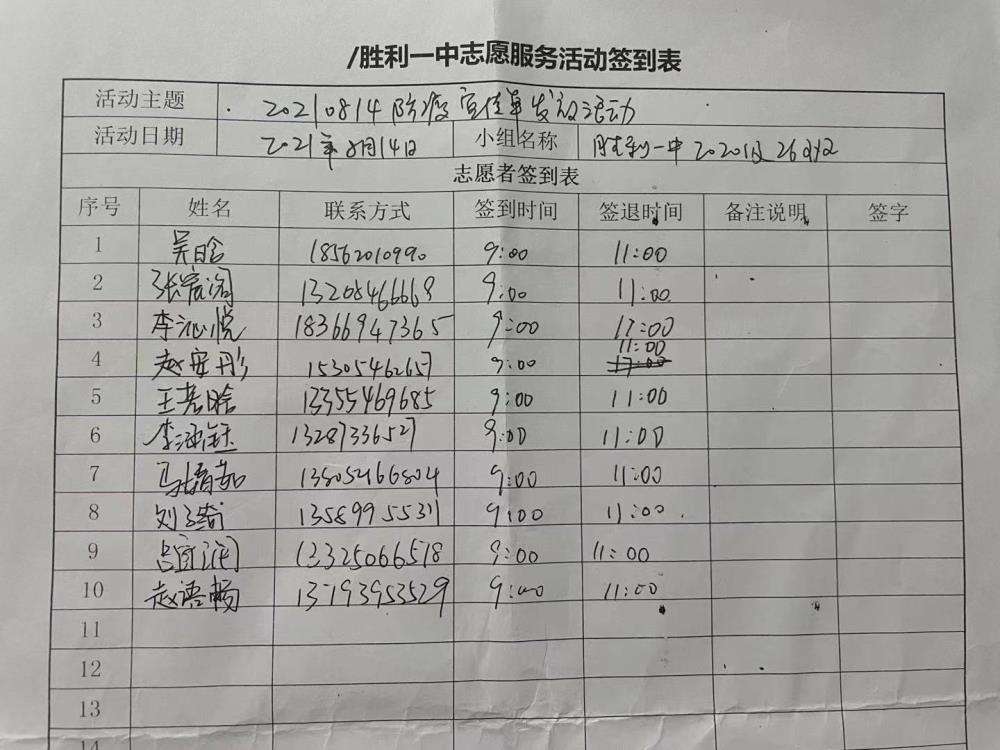 /胜利一中志愿服务活动签到表
活动主题 20210814防疫宣传单发放活动
活动日期 2021年8月14日 小组名称 胜利一中2020级26
志愿者签到表
序号 姓名 联系方式 签到时间 签退时间 备注说明 签字
1 吴晗 18562010990 9:00 11:00
2 张宸阁 13208466668 9:00 11:00
3 李沁悦 18366947365 9:00 17:00
4 赵安彤 15305462657 9:00 11:00
5 王若晗 13355469685 9:00 11:00
6 李涵钰 13287336527 9:00 11:00
7 马婧茹 13805466804 9:00 11:00
8 刘子绮 9:00 11:00
9 吕宜润 13325066578 9:00 11:00
10 赵语畅 13793953529 9:00 11:00
11
12
13
14